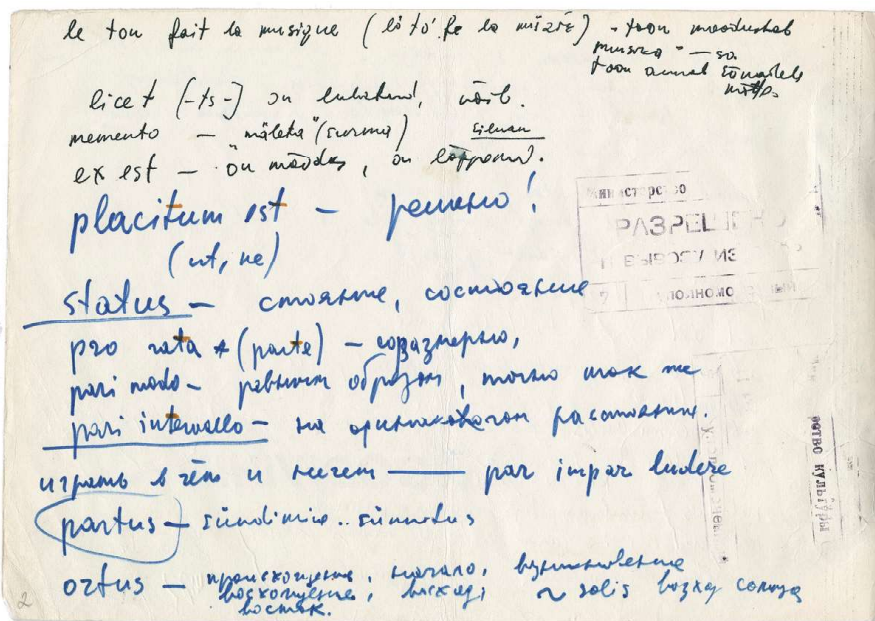 le ton fait la musique (lö tõ fe la müzik) - "toon moodustab
muusika" — s.o.
toon annab sõnadele
mõtte.
licet [-ts-] on lubatud, võib.
memento — "mäleta" (surma)
ex est — on möödas, on lõppenud.
placitum est — решено!
(ut, ne)
status — стояние, состояние
pro rata (parte) — соразмерно,
pari modo — равным образом, точно так же
pari intervallo — на одинаковом расстоянии.
играть в чёт и нечет — par impar ludere
partus — sündimine .. sünnitus
ortus — происхождение, начало, возникновение
восхождение, восход, ~ solis восход солнца
восток.
Министерство
РАЗРЕШЕНО
К ВЫВОЗУ ИЗ
УПОЛНОМОЧЕННЫЙ
культуры
2